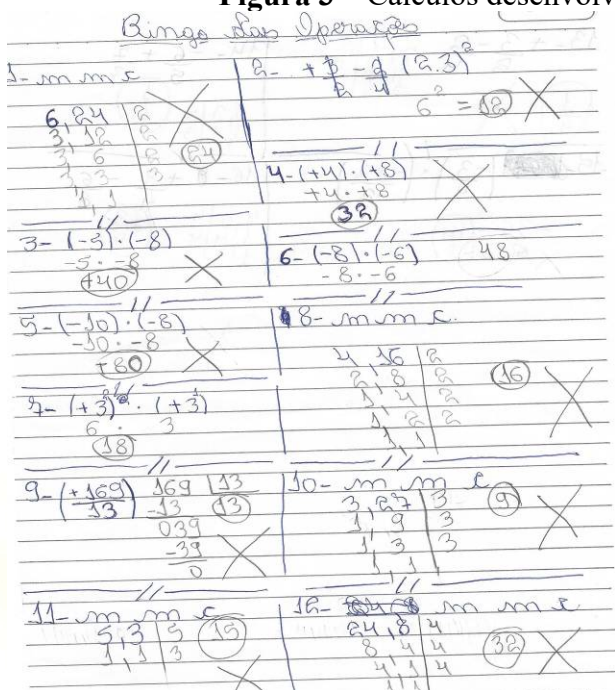 Figura 3 – Cálculos desenvolv
Bingo das Operação
1- m m c
6,24 | 2
3,12 | 2
3 6 | 2 24
3 3 | 3
1,1
2- (2.3)²
6² = 12
3- (-5).(-8)
-5 . -8
+40
4-(+4).(+8)
+4 . +8
32
5-(-10).(-8)
-10 . -8
+80
6-(-8).(-6) 48
-8 . -6
7- (+3)² . (+3)
6 . 3
18
8- m m c.
4,16 | 2
2,8 | 2 16
1,4 | 2
1,2 | 2
1,1
9-(+169/13) 169 | 13
-13 13
039
-39
0
10- m m c
3,27 | 3 9
1,9 | 3
1,3 | 3
1,1
11- m m c
5,3 | 5 15
1,1 | 3
12- m m c
24,8 | 4
8,4 | 4 32
4,1 | 4
1,1